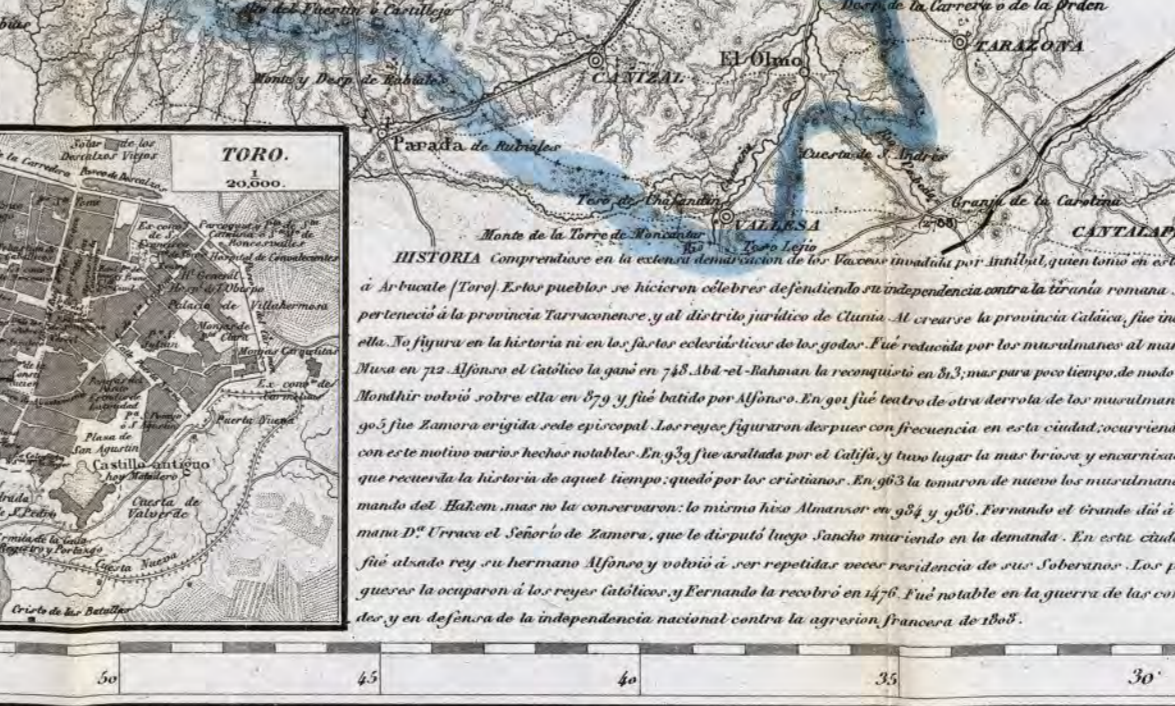 Alto del Fuertin ó Castillejo
Desp. de la Carrera o de la Orden
TARAZONA
El Olmo
CAÑIZAL
Monte y Desp. de Rubiales
Parada de Rubiales
Cuesta de S. Andrés
Guareña
Teso de Chafandin
Granja de la Carolina
VALLESA
Monte de la Torre de Moncantar
Teso Lejio
CANTALAP
TORO.
1
20,000.
Solar de los
Descalzos Viejos
de la Carredra
Paseo de Descalzos
Hospital de Convalecientes
Hl. General
Hosp. del Obispo
Palacio de Villahermosa
Monjas de
Sta. Clara
Monjas Carmelitas
Ex convto. de
Carmelitas
Puerta Nueva
Plaza de
San Agustin
Castillo antiguo
hoy Matadero
Cuesta de
Valverde
de S. Pedro
Ermita de la Guia
Registro y Portazgo
Cuesta Nueva
Cristo de las Batallas
HISTORIA Comprendiose en la extensa demarcacion de los Vaxeos invadida por Annibal, quien tomo en est
á Arbucale (Toro). Estos pueblos se hicieron célebres defendiendo su independencia contra la tirania romana.
perteneció á la provincia Tarraconense, y al distrito jurídico de Clunia. Al crearse la provincia Caláica, fue in
ella. No figura en la historia ni en los fastos eclesiásticos de los godos. Fué reducida por los musulmanes al man
Muza en 712. Alfonso el Católico la ganó en 748. Abd-el-Rahman la reconquistó en 813; mas para poco tiempo, de modo
Mondhir volvió sobre ella en 879 y fué batido por Alfonso. En 901 fué teatro de otra derrota de los musulman
905 fue Zamora erigida sede episcopal. Los reyes figuraron despues con frecuencia en esta ciudad; ocurriend
con este motivo varios hechos notables. En 939 fue asaltada por el Califa, y tuvo lugar la mas briosa y encarniza
que recuerda la historia de aquel tiempo: quedó por los cristianos. En 963 la tomaron de nuevo los musulman
mando del Hakem, mas no la conservaron: lo mismo hizo Almanzor en 984 y 986. Fernando el Grande dió á
mana D.ª Urraca el Señorío de Zamora, que le disputó luego Sancho muriendo en la demanda. En esta ciuda
fué alzado rey su hermano Alfonso y volvió á ser repetidas veces residencia de sus Soberanos. Los p
gueses la ocuparon á los reyes Católicos, y Fernando la recobró en 1476. Fué notable en la guerra de las co
des, y en defensa de la independencia nacional contra la agresion francesa de 1808.
50
45
40
35
30'